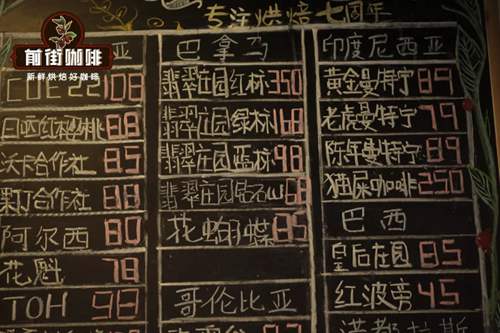 前街咖啡
新鲜烘焙好咖啡
专注烘焙七周年
亚
108
日晒红樱桃 88
沃卡合作社 85
果丁丁合作社 88
阿尔西 80
花魁 78
TOH 98
巴拿马
翡翠庄园红标 350
翡翠庄园绿标 168
翡翠庄园蓝标 98
翡翠庄园钻石山 68
花蝴蝶 85
哥伦比亚
印度尼西亚
黄金曼特宁 89
老虎曼特宁 79
陈年曼特宁 89
猫屎咖啡 250
巴西
皇后庄园 85
红波旁 45